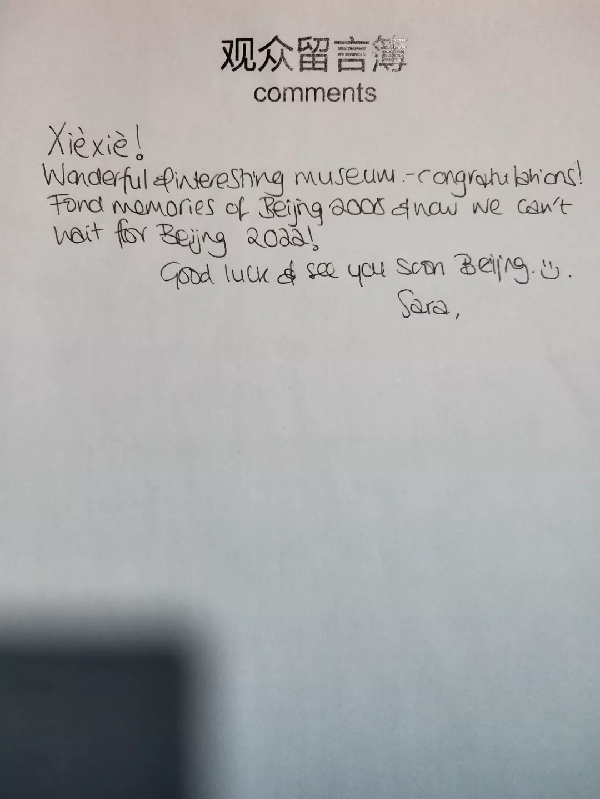 观众留言簿
comments
Xièxiè!
Wonderful & interesting museum - congratulations!
Fond memories of Beijing 2008 & now we can't
wait for Beijing 2022!
Good luck & see you soon Beijing. ☺.
Sara,